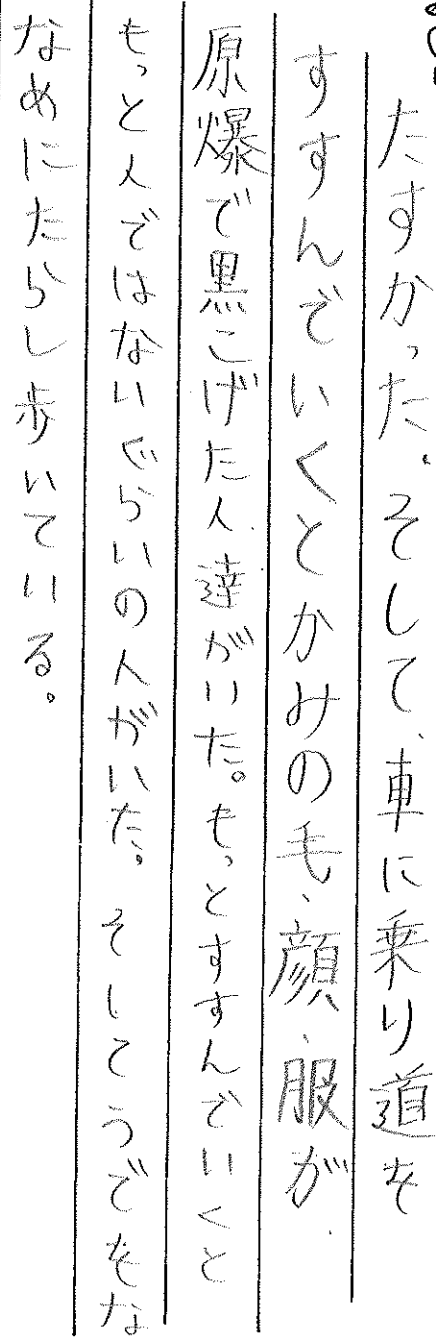 たすかった。そして、車に乗り道を
すすんでいくとかみの毛、顔、服が、
原爆で黒こげた人、達がいた。もっとすすんでいくと
もっと人ではないぐらいの人がいた。そしてうでをな
なめにたらし歩いている。